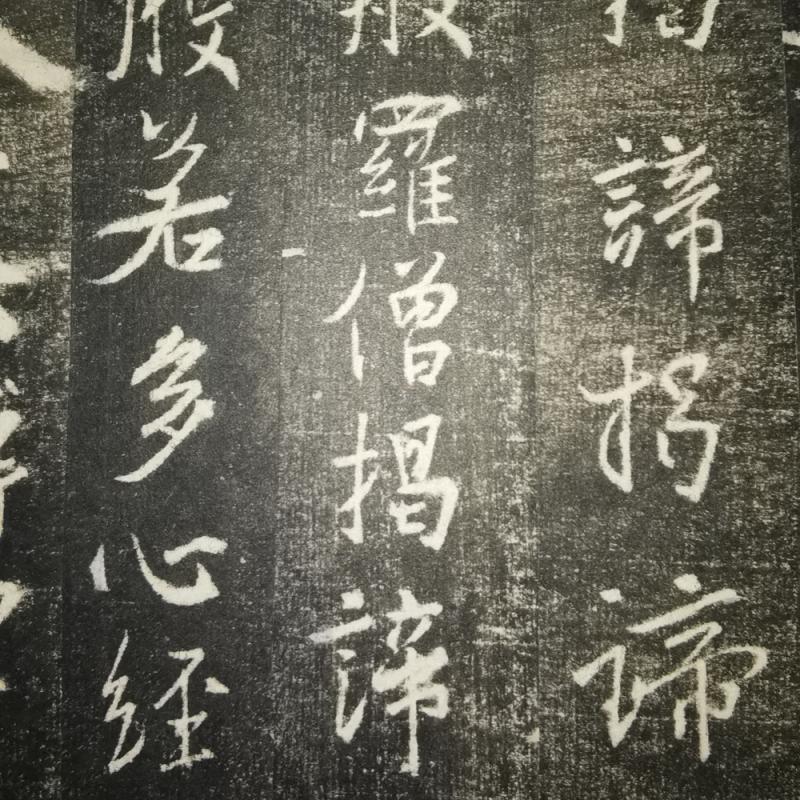 揭諦揭諦
般羅僧揭諦
般若多心経